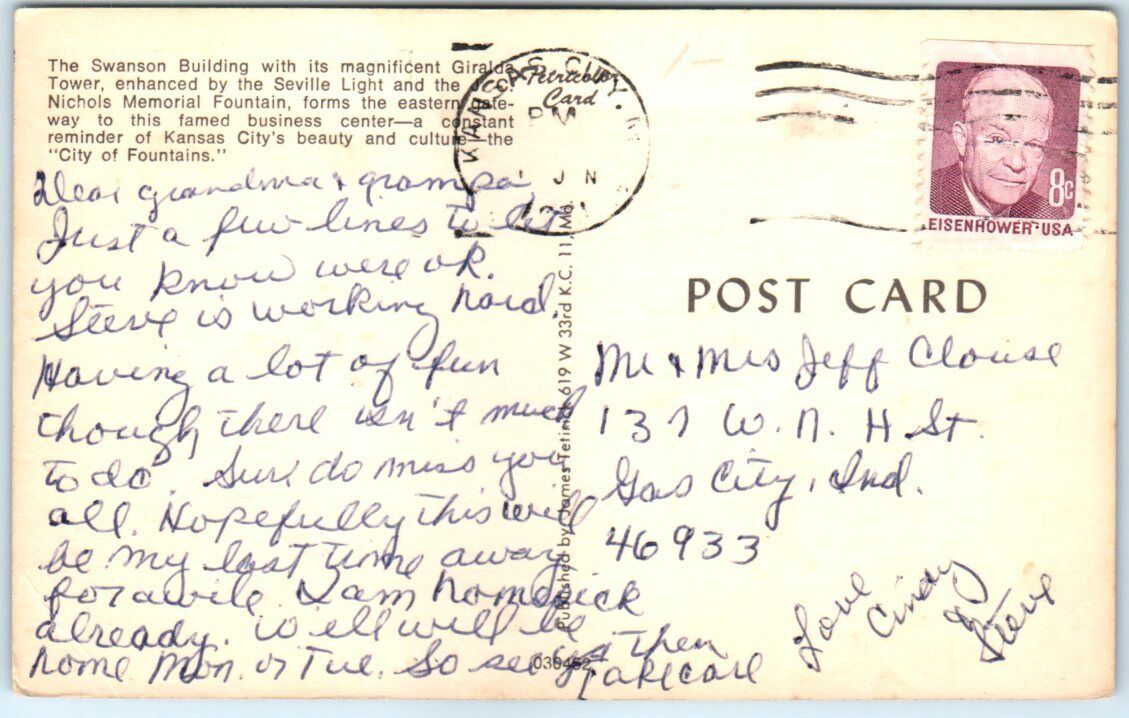 The Swanson Building with its magnificent Giralda
Tower, enhanced by the Seville Light and the J.C.
Nichols Memorial Fountain, forms the eastern gate-
way to this famed business center—a constant
reminder of Kansas City's beauty and culture—the
"City of Fountains."
Petricolor
Card
KANSAS CITY, M
PM
1 JN
EISENHOWER·USA
8c
Dear grandma & grampa,
Just a few lines to let
you know were ok.
Steve is working hard.
Having a lot of fun
though there isn't much
to do. Sure do miss you
all. Hopefully this will
be my last time away
for awile. I am homesick
already. Well will be
home Mon. or Tue. So see ya then
Take care
Love
Cindy
& Steve
Published by James Tetirick 619 W 33rd K.C. 11, Mo.
030452
POST CARD
Mr & Mrs Jeff Clouse
137 W. N. H St.
Gas City, Ind.
46933